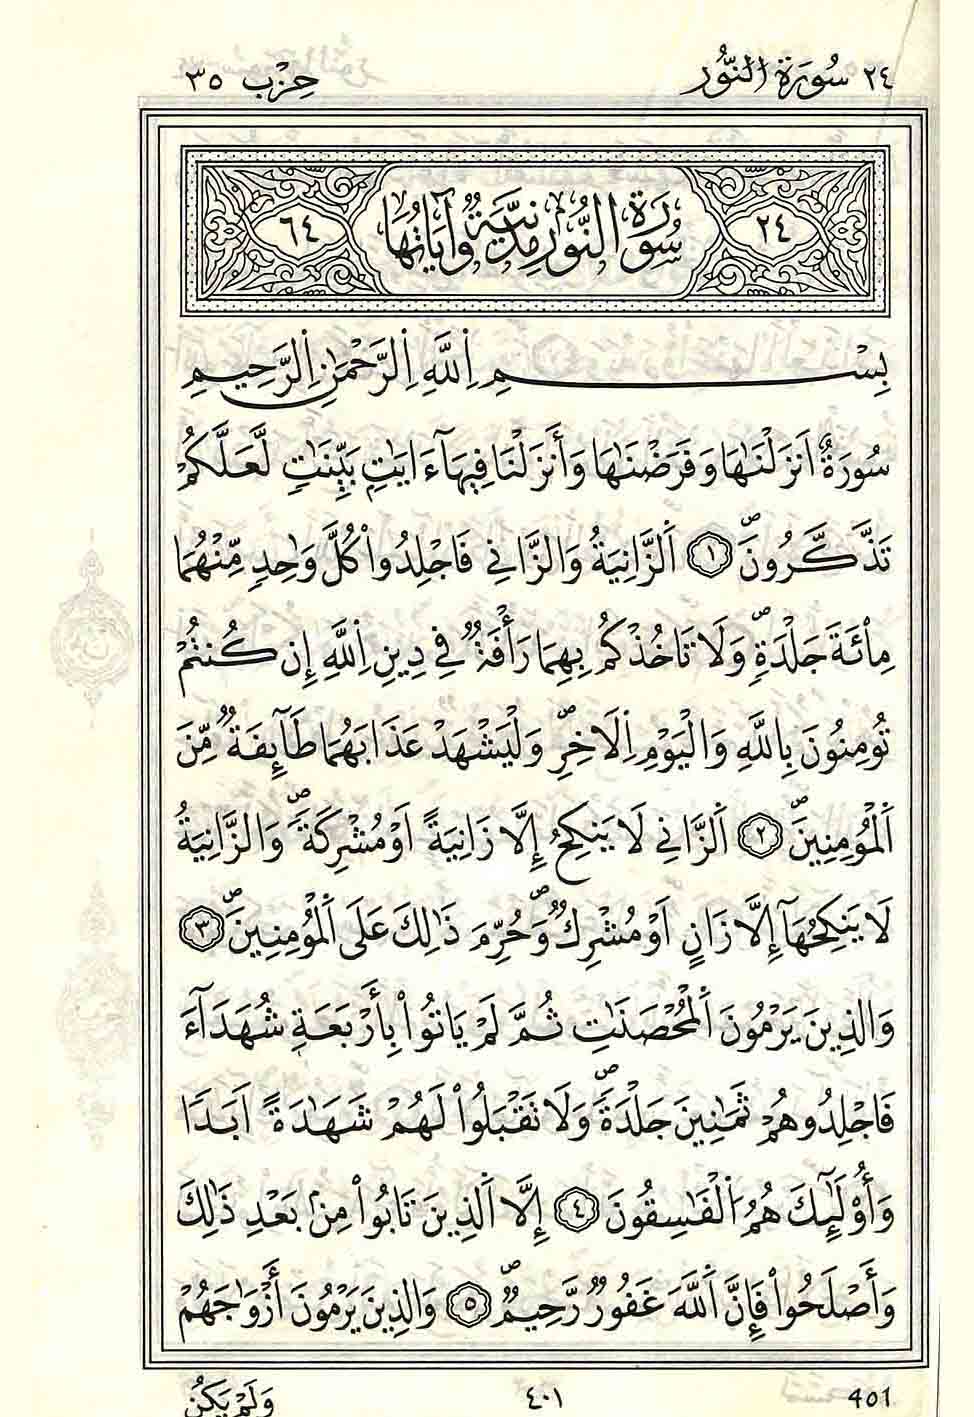 ٢٤ سُورَةُ النُّور حِزْب ٣٥
٢٤ سُورَةُ النُّورِ مَدَنِيَّةٌ وَآيَاتُهَا ٦٤
بِسْمِ اِ۬للَّهِ اِ۬لرَّحْمَٰنِ اِ۬لرَّحِيمِ
سُورَةٌ اَنزَلْنَٰهَا وَفَرَضْنَٰهَا وَأَنزَلْنَا فِيهَآ ءَايَٰتِۢ بَيِّنَٰتٖ لَّعَلَّكُمْ
تَذَّكَّرُونَۖ ١ اَ۬لزَّانِيَةُ وَالزَّانِے فَاجْلِدُواْ كُلَّ وَٰحِدٖ مِّنْهُمَا
مِاْئَةَ جَلْدَةٖۖ وَلَا تَاخُذْكُم بِهِمَا رَأْفَةٞ فِے دِينِ اِ۬للَّهِ إِن كُنتُمْ
تُومِنُونَ بِاللَّهِ وَالْيَوْمِ اِ۬لَاخِرِۖ وَلْيَشْهَدْ عَذَابَهُمَا طَآئِفَةٞ مِّنَ
اَ۬لْمُومِنِينَۖ ٢ اَ۬لزَّانِے لَا يَنكِحُ إِلَّا زَانِيَةً اَوْ مُشْرِكَةٗۖ وَالزَّانِيَةُ
لَا يَنكِحُهَآ إِلَّا زَانٍ اَوْ مُشْرِكٞۖ وَحُرِّمَ ذَٰلِكَ عَلَے اَ۬لْمُومِنِينَۖ ٣
وَالذِينَ يَرْمُونَ اَ۬لْمُحْصَنَٰتِ ثُمَّ لَمْ يَاتُواْ بِأَرْبَعَةِ شُهَدَآءَ
فَاجْلِدُوهُمْ ثَمَٰنِينَ جَلْدَةٗۖ وَلَا تَقْبَلُواْ لَهُمْ شَهَٰدَةً اَبَدٗا
وَأُوْلَٰٓئِكَ هُمُ اُ۬لْفَٰسِقُونَ ٤ إِلَّا اَ۬لذِينَ تَابُواْ مِنۢ بَعْدِ ذَٰلِكَ
وَأَصْلَحُواْ فَإِنَّ اَ۬للَّهَ غَفُورٞ رَّحِيمٞۖ ٥ وَالذِينَ يَرْمُونَ أَزْوَٰجَهُمْ
401 ٤٠١ وَلَمْ يَكُن